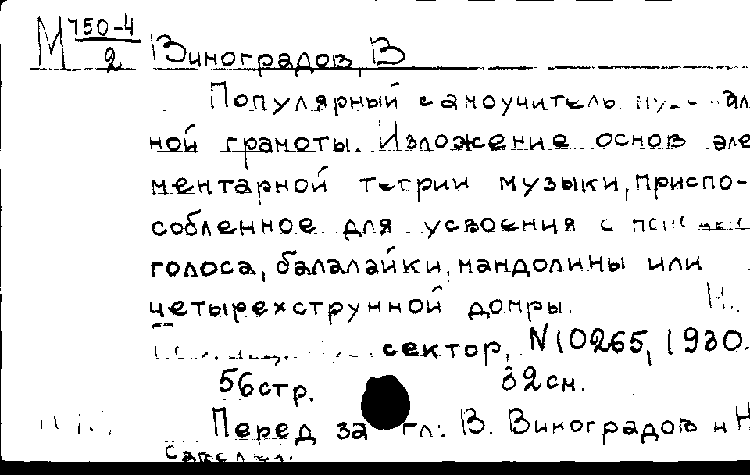 М 750-4/2 Виноградов, В
Популярный самоучитель
ной грамоты. Изложение основ эле
ментарной теории музыки, приспо-
собленное для усвоения с
голоса, балалайки, мандолины или
четырехструнной домры. М.
сектор, N10265, 1930.
56стр. 32см.
Перед загл: В. Виноградов и Н